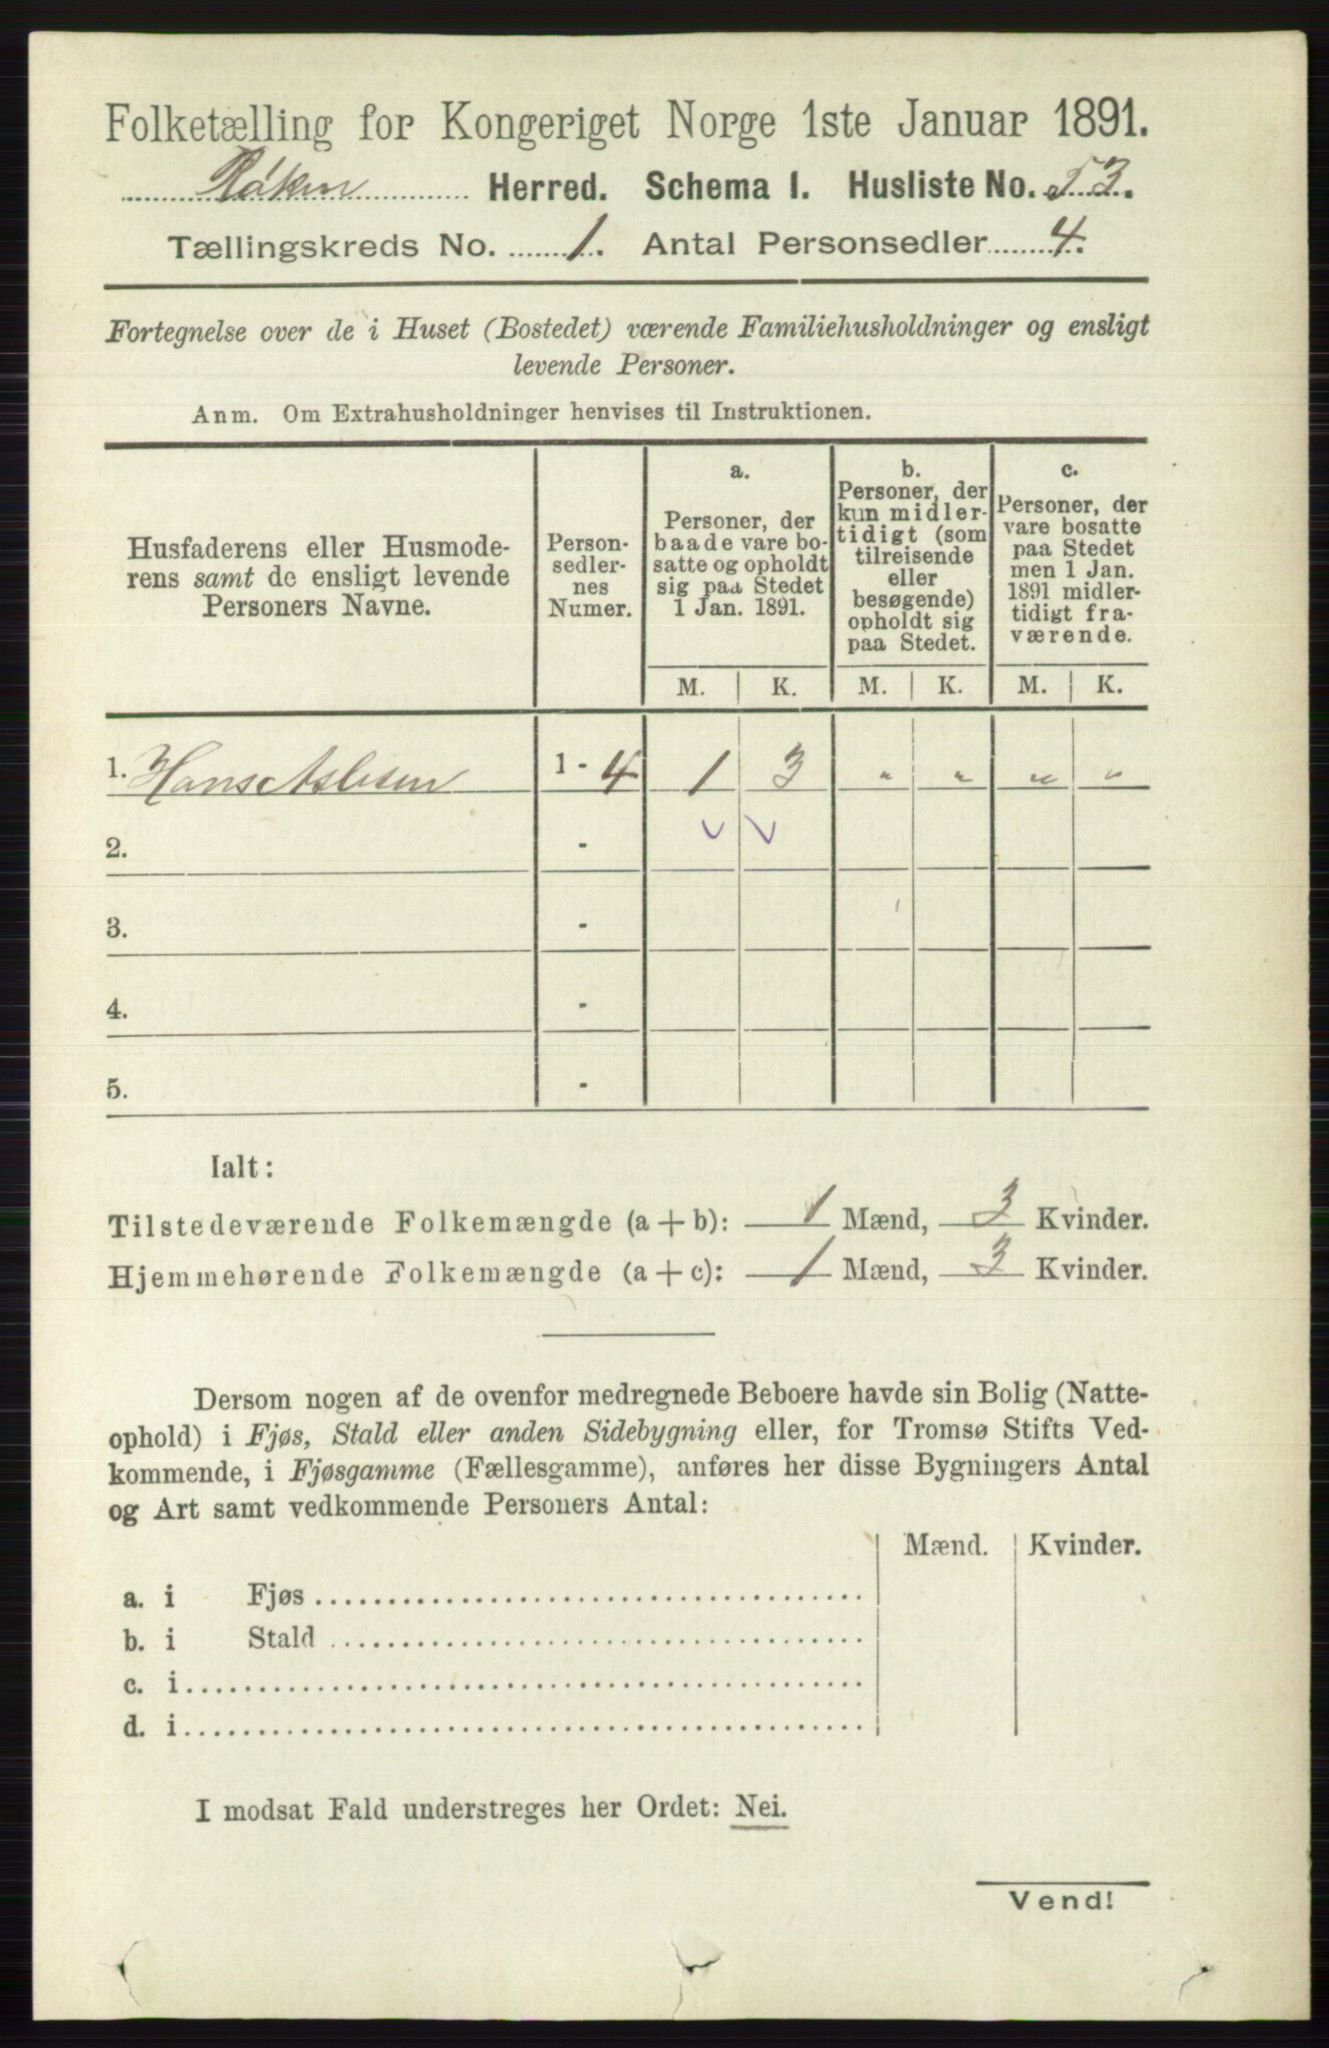 Folketælling for Kongeriget Norge 1ste Januar 1891.
Røken Herred. Schema I. Husliste No. 53.
Tællingskreds No. 1. Antal Personsedler 4.
Fortegnelse over de i Huset (Bostedet) værende Familiehusholdninger og ensligt
levende Personer.
Anm. Om Extrahusholdninger henvises til Instruktionen.
Husfaderens eller Husmode-
rens samt de ensligt levende
Personers Navne.
Person-
sedler-
nes
Numer.
a.
Personer, der
baade vare bo-
satte og opholdt
sig paa Stedet
1 Jan. 1891.
b.
Personer, der
kun midler-
tidigt (som
tilreisende
eller
besøgende)
opholdt sig
paa Stedet.
c.
Personer, der
vare bosatte
paa Stedet
men 1 Jan.
1891 midler-
tidigt fra-
værende.
M. K. M. K. M. K.
1. Hans Aslesen 1 - 4 1 3 " " " "
2. -
3. -
4. -
5. -
Ialt:
Tilstedeværende Folkemængde (a + b): 1 Mænd, 3 Kvinder.
Hjemmehørende Folkemængde (a + c): 1 Mænd, 3 Kvinder.
Dersom nogen af de ovenfor medregnede Beboere havde sin Bolig (Natte-
ophold) i Fjøs, Stald eller anden Sidebygning eller, for Tromsø Stifts Ved-
kommende, i Fjøsgamme (Fællesgamme), anføres her disse Bygningers Antal
og Art samt vedkommende Personers Antal:
Mænd. Kvinder.
a. i Fjøs
b. i Stald
c. i
d. i
I modsat Fald understreges her Ordet: Nei.
Vend!